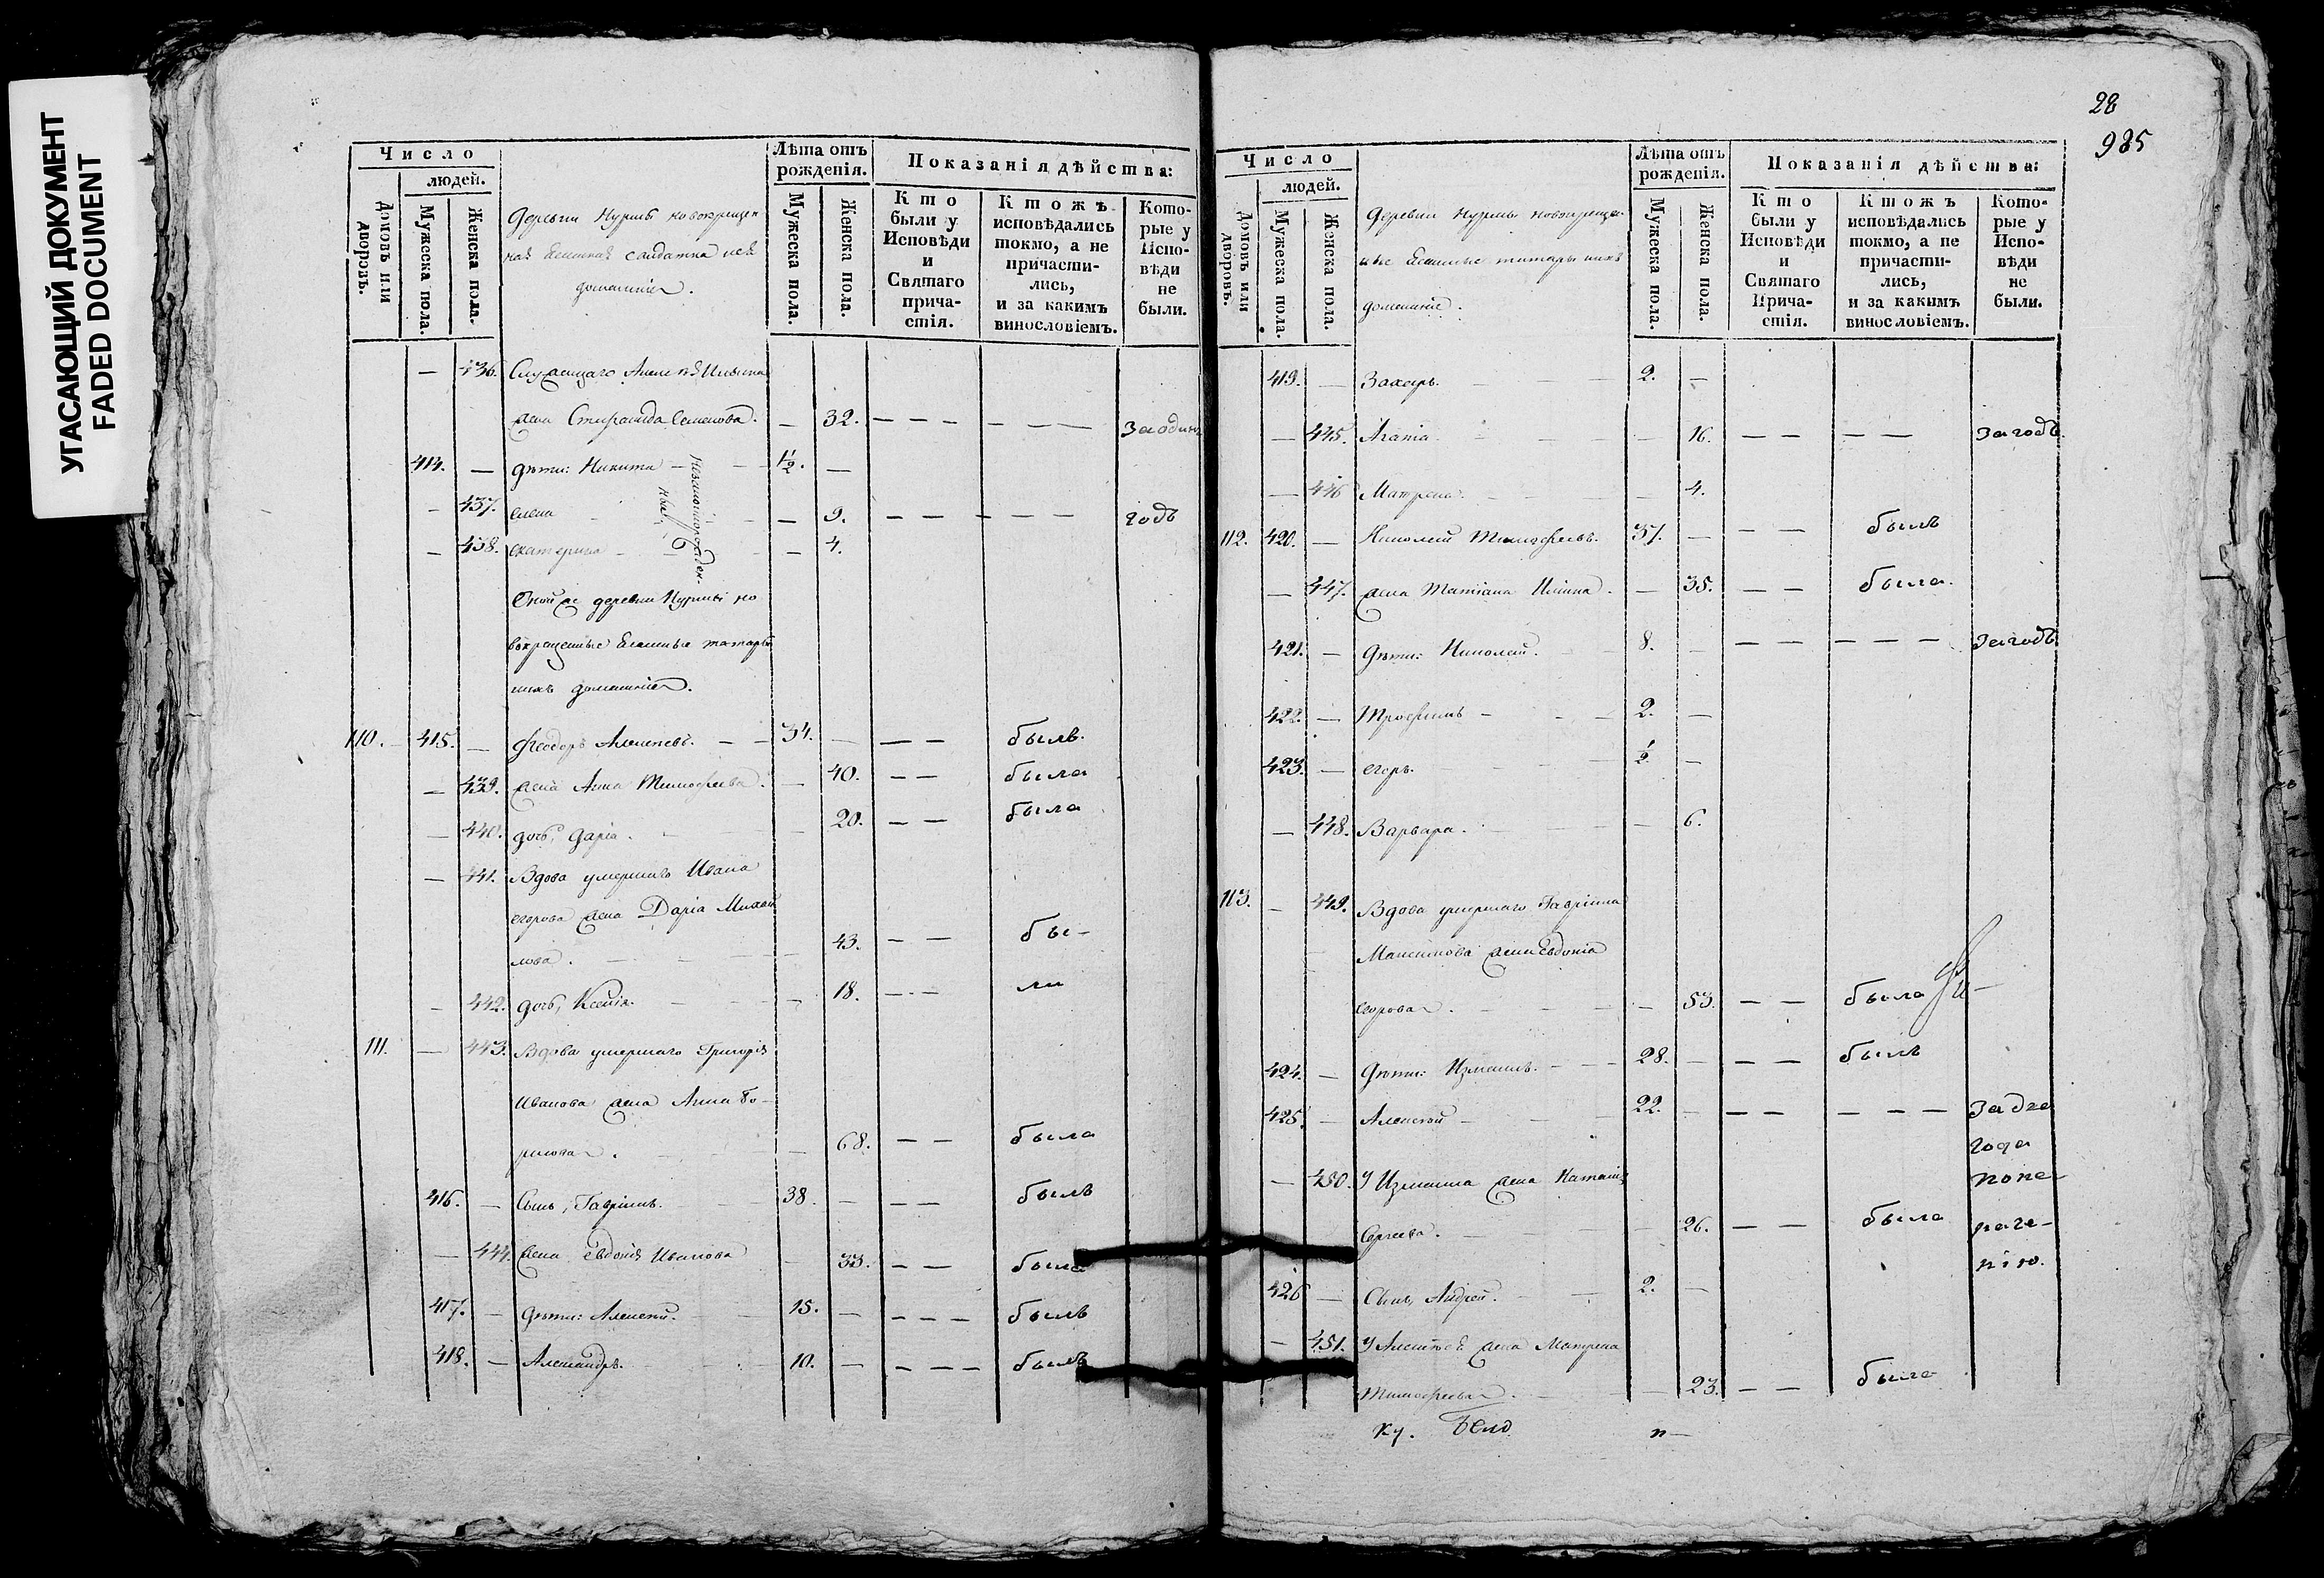 УГАСАЮЩИЙ ДОКУМЕНТ
FADED DOCUMENT
Число
людей.
Домовъ или дворовъ.
Мужеска пола.
Женска пола.
деревни Нурмы новокрещен
ная ясашная салдатка иея
домашніе.
Лѣта отъ рожденія.
Мужеска пола.
Женска пола.
Показанія дѣйства:
Кто были у Исповѣди и Святаго причастія.
Ктожъ исповѣдались токмо, а не причастились, и за какимъ винословіемъ.
Которые у Исповѣди не были.
— 436. Служащаго Алексѣя Ильина
жена Степанида Семенова. — 32. — — — — — — за одинъ
414. — дѣти: Никита — 1/2. —
— 437. елена — 9. — — — — — — годъ
— 438. екатерина — 4.
незаконорожден-
ные
Тойже деревни Нурмы но
вокрещенные ясашные татары
иихъ домашніе.
110. 415. — Феодоръ Алексеевъ. — 34. — — — былъ
— 439. жена Анна Тимофеева. — 40. — — была
— 440. дочь, Дарія. — 20. — — была
— 441. Вдова умершаго Ивана
егорова жена Дарія Михай
лова. — 43. — — бы-
— 442. дочь, Ксенія. — 18. — — ли
111. — 443. Вдова умершаго Григорія
Иванова жена Анна Бо-
рисова. — 68. — — была
416. — Сынъ, Гавріилъ. 38. — — — былъ
— 444. жена евдокія Иванова — 33. — — была
417. — дѣти: Алексей. 15. — — — — былъ
418. — Александръ. 10. — — — — былъ
28
985
Число
людей.
Домовъ или дворовъ.
Мужеска пола.
Женска пола.
деревни Нурмы новокреще-
ные ясашные татары иихъ
домашніе.
Лѣта отъ рожденія.
Мужеска пола.
Женска пола.
Показанія дѣйства:
Кто были у Исповѣди и Святаго Причастія.
Ктожъ исповѣдались токмо, а не причастились, и за какимъ винословіемъ.
Которые у Исповѣди не были.
419. — Захаръ. 2. —
— 445. Агапія. — 16. — — — — за годъ.
— 446 Матрена. — 4.
112. 420. — Николай Тимофеевъ. 37. — — — былъ
— 447. жена Татіана Ильина. — 35. — — была.
421. — дѣти: Николай. 8. — — — — — — за годъ
422. — Трофимъ — 2. —
423. — егоръ. 1/2 —
— 448. Варвара. — 6.
113. — 449. Вдова умершаго Гавріила
Максимова жена Евдокія
егорова. — 53. — — была
424. — дѣти: Измаилъ. 28. — — — былъ
425. — Алексей — 22. — — — — — — за два
года
— 450. У Измаила жена Наталія нопе-
Сергеева. — 26. — — была раче-
нію.
426 — Сынъ, Андрей. 2. —
— 451. У Алексѣя жена Матрена
Тимофеева. — 23. — — была